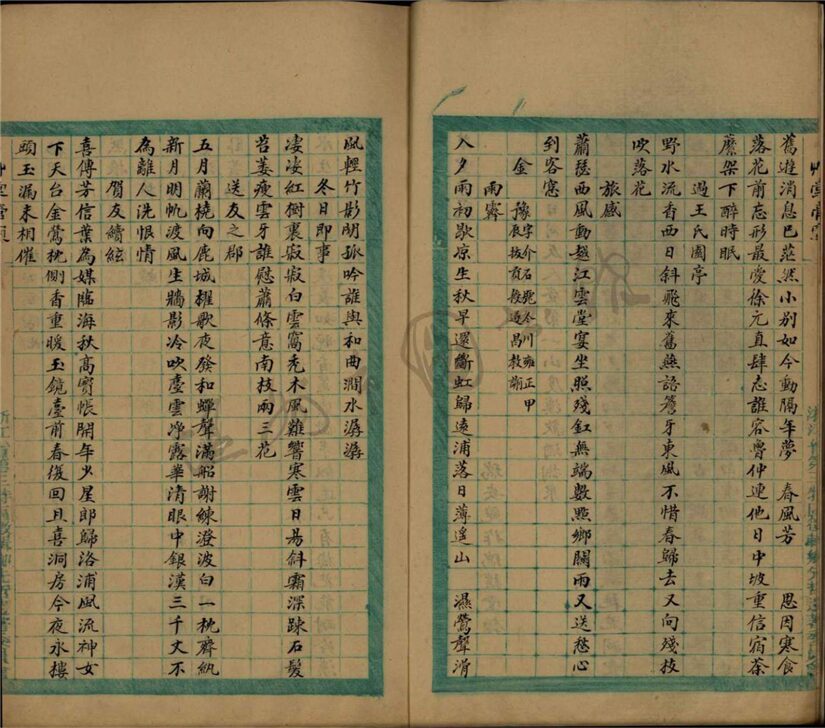 舊遊消息已茫然小别如今動隔年夢　春風芳　思因寒食
落花前忘形最愛徐元直肆志誰容魯仲連他日中坡重信宿荼
蘼架下醉時眠
過王氏園亭
野水流香西日斜飛來舊燕語簷牙東風不惜春歸去又向殘枝
吹落花
旅感
蕭瑟西風動越江雲堂宴坐照殘釭無端數點鄉關雨又送愁心
到客窓
金　豫 字介石號今川雍正甲辰拔貢授遂昌教諭
雨霽
入夕雨初歇凉生秋早還斷虹歸遠浦落日薄遙山　濕鶯聲滑
風輕竹影明孤吟誰與和曲澗水潺潺
冬日即事
凄凄紅樹裏寂寂白雲窩禿木風難響寒雲日易斜霜深踈石髮
苔萎瘦雲牙誰慰蕭條意南枝兩三花
送友之郡
五月蘭橈向鹿城櫂歌夜發和蟬聲滿船謝練澄波白一枕齊紈
新月明帆渡風生牆影冷吹臺雲凈露華清眼中銀漢三千丈不
為離人洗恨情
賀友續絃
喜傳芳信葉為媒臨海秋高寶帳開年少星郎歸洛浦風流神女
下天台金鶯枕側香重暖玉鏡臺前春復回且喜洞房今夜永樓
頭玉漏未相催